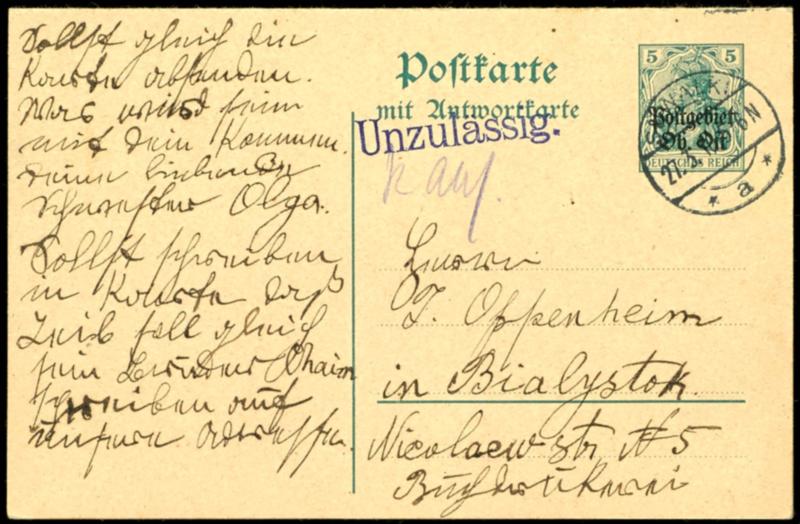 Sollst gleich die
Karte absenden.
Was wird sein
mit dein Kommen.
deine liebende
Schwester Olga.
Sollst schreiben
in Karte daß
Leib soll gleich
sein Bruder Chaim
schreiben auf
unsere adresse.
Postkarte
mit Antwortkarte
Unzulässig.
5 5
Postgebiet
Ob. Ost
DEUTSCHES REICH
27.
* a *
Herrn
J. Oppenheim
in Bialystok.
Nicolaewstr. # 5
Buchdruckerei